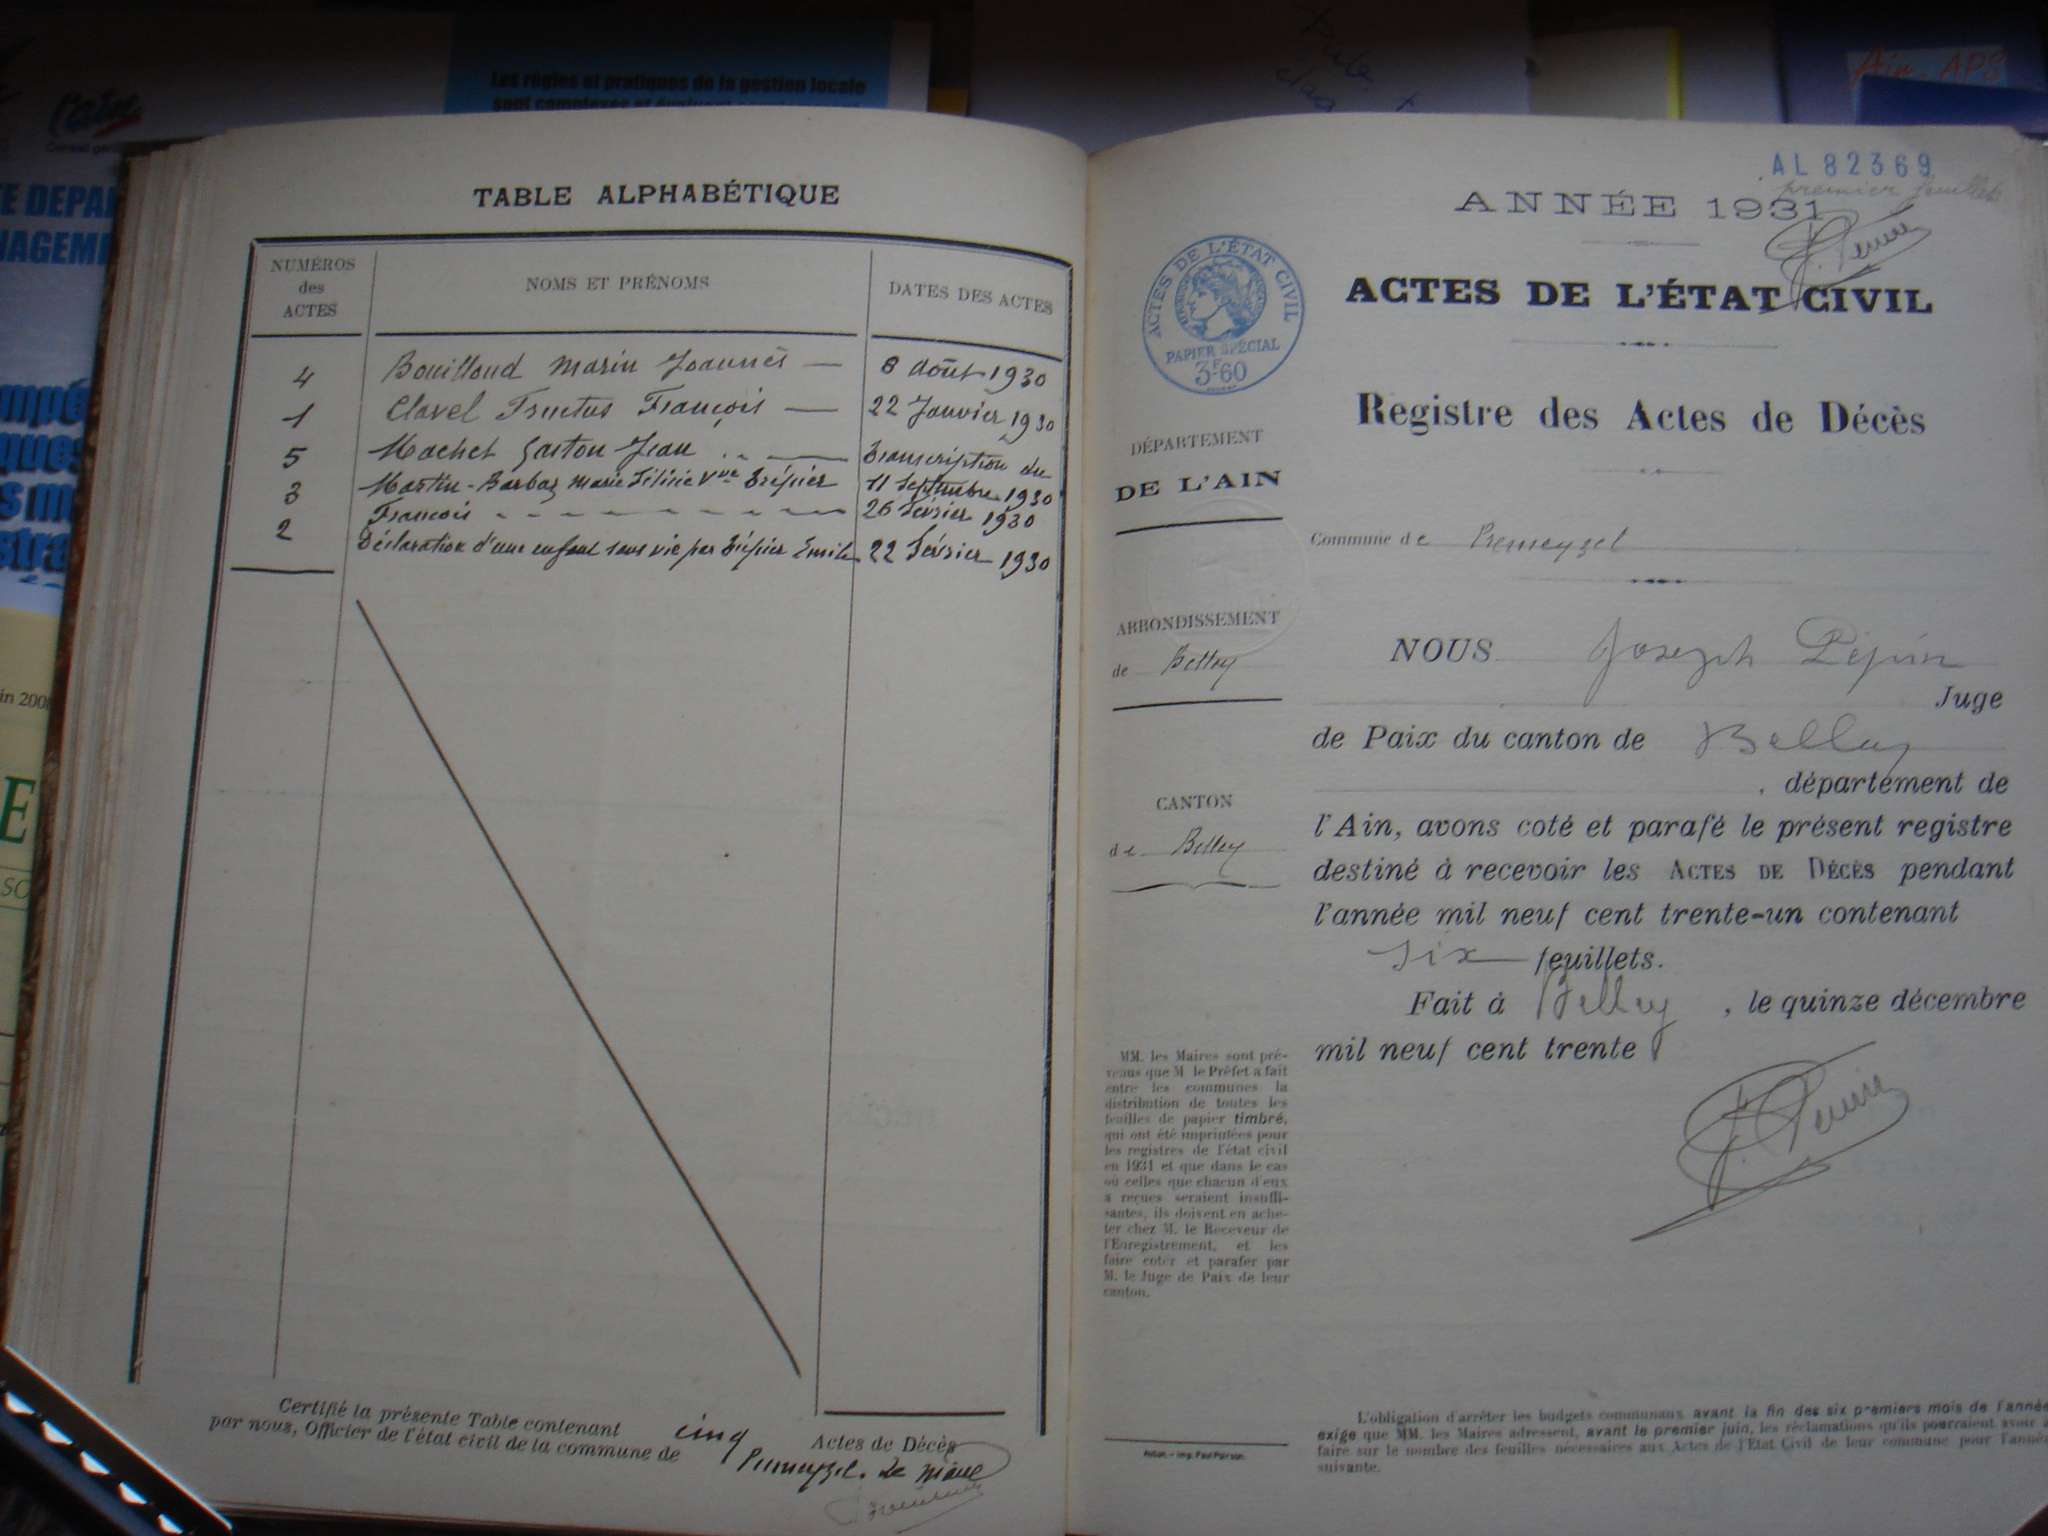 l'ain
Conseil gén
Les règles et pratiques de la gestion locale
sont complexes et évoluent
Ain. APS
TE DEPAR
NAGEM
in 200
TABLE ALPHABÉTIQUE
NUMÉROS des ACTES
NOMS ET PRÉNOMS
DATES DES ACTES
4 Bouilloud Marin Joannès — 8 Août 1930
1 Clavel Fructus François — 22 Janvier 1930
5 Machet Gaston Jean — transcription du
11 Septembre 1930
3 Martin-Barbaz Marie Félicie Vve Trépier
François 26 février 1930
2 Déclaration d'un enfant sans vie par Trépier Emile 22 février 1930
Certifié la présente Table contenant cinq Actes de Décès
par nous, Officier de l'état civil de la commune de Premeyzel. Le Maire
AL 82369
premier feuillet
ANNÉE 1931
ACTES DE L'ÉTAT CIVIL
PAPIER SPÉCIAL
3F60
ACTES DE L'ÉTAT CIVIL
Registre des Actes de Décès
DÉPARTEMENT
DE L'AIN
Commune de Premeyzel
ARRONDISSEMENT
de Belley
CANTON
de Belley
NOUS Joseph Pépin
Juge
de Paix du canton de Belley
, département de
l'Ain, avons coté et parafé le présent registre
destiné à recevoir les ACTES DE DÉCÈS pendant
l'année mil neuf cent trente-un contenant
six feuillets.
Fait à Belley, le quinze décembre
mil neuf cent trente
MM. les Maires sont pré-
venus que M. le Préfet a fait
entre les communes la
distribution de toutes les
feuilles de papier timbré,
qui ont été imprimées pour
les registres de l'état civil
en 1931 et que dans le cas
où celles que chacun d'eux
a reçues seraient insuffi-
santes, ils doivent en ache-
ter chez M. le Receveur de
l'Enregistrement, et les
faire coter et parafer par
M. le Juge de Paix de leur
canton.
L'obligation d'arrêter les budgets communaux avant la fin des six premiers mois de l'année
exige que MM. les Maires adressent, avant le premier juin, les réclamations qu'ils pourraient avoir à
faire sur le nombre des feuilles nécessaires aux Actes de l'État Civil de leur commune pour l'année
suivante.